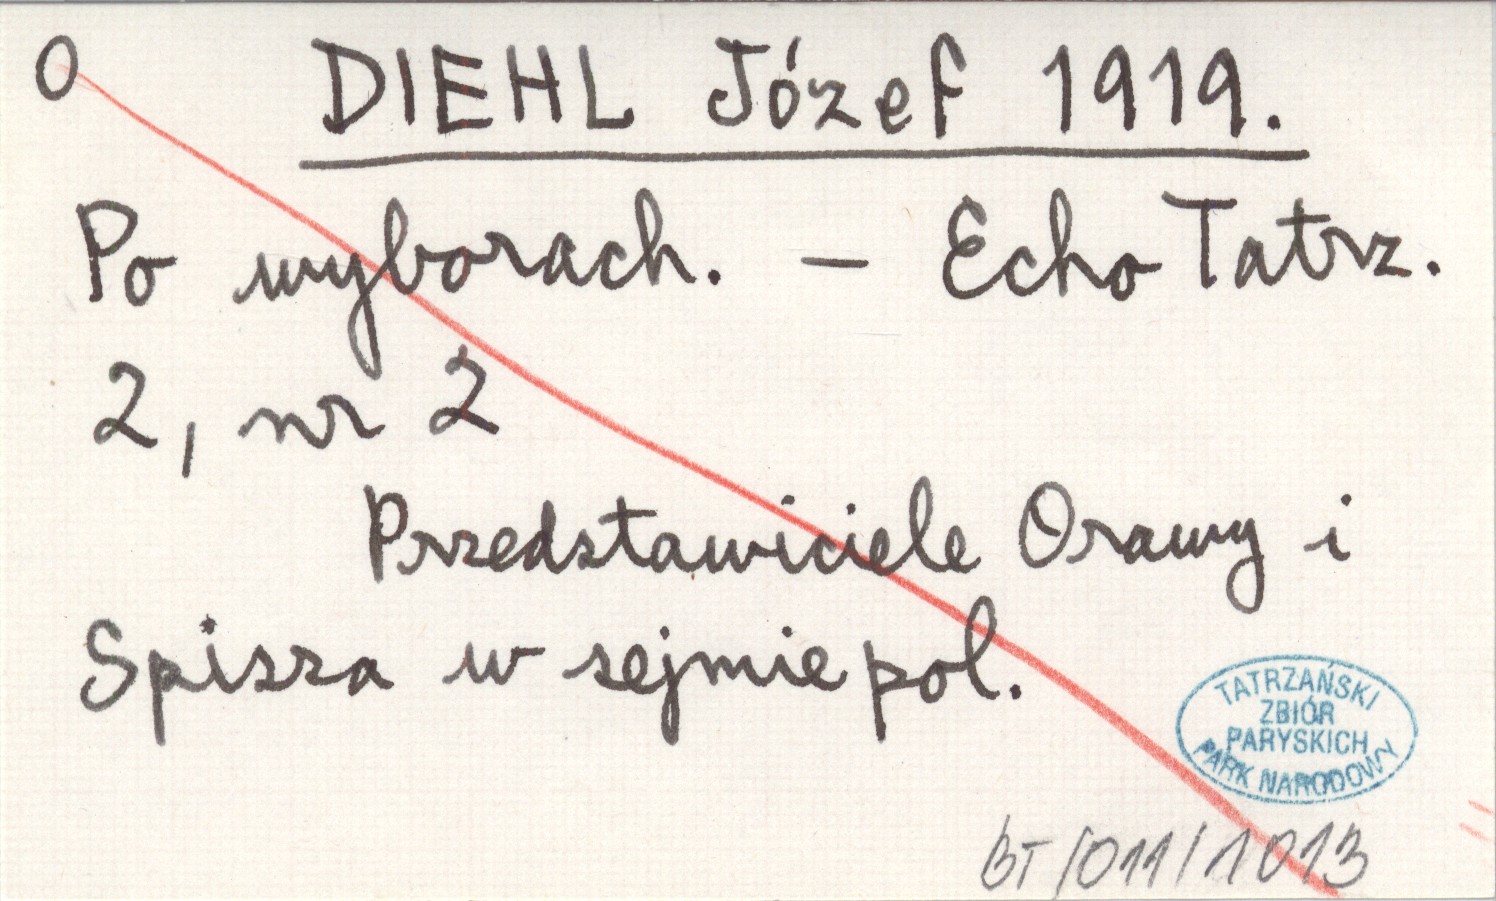 O DIEHL Józef 1919.
Po wyborach. – Echo Tatrz.
2, nr 2
Przedstawiciele Orawy i
Spisza w sejmie pol.
TATRZAŃSKI
ZBIÓR
PARYSKICH
PARK NARODOWY
BT/011/1013